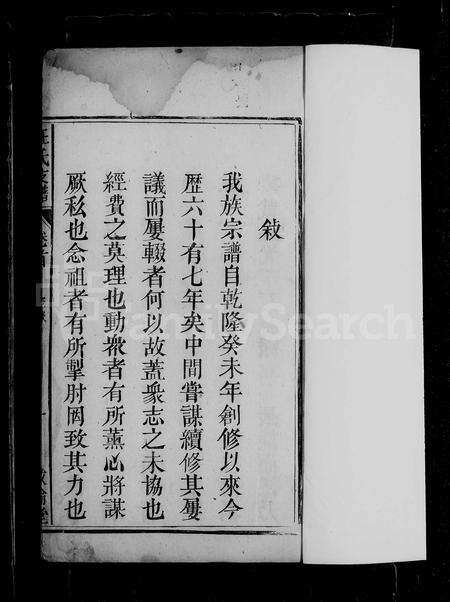 敍
我族宗譜自乾隆癸未年創修以來今
歴六十有七年矣中間嘗謀續修其屢
議而屢輟者何以故蓋衆志之未協也
經費之莫理也動衆者有所薰心將謀
厥私也念祖者有所掣肘罔致其力也
氏支譜
FamilySearch